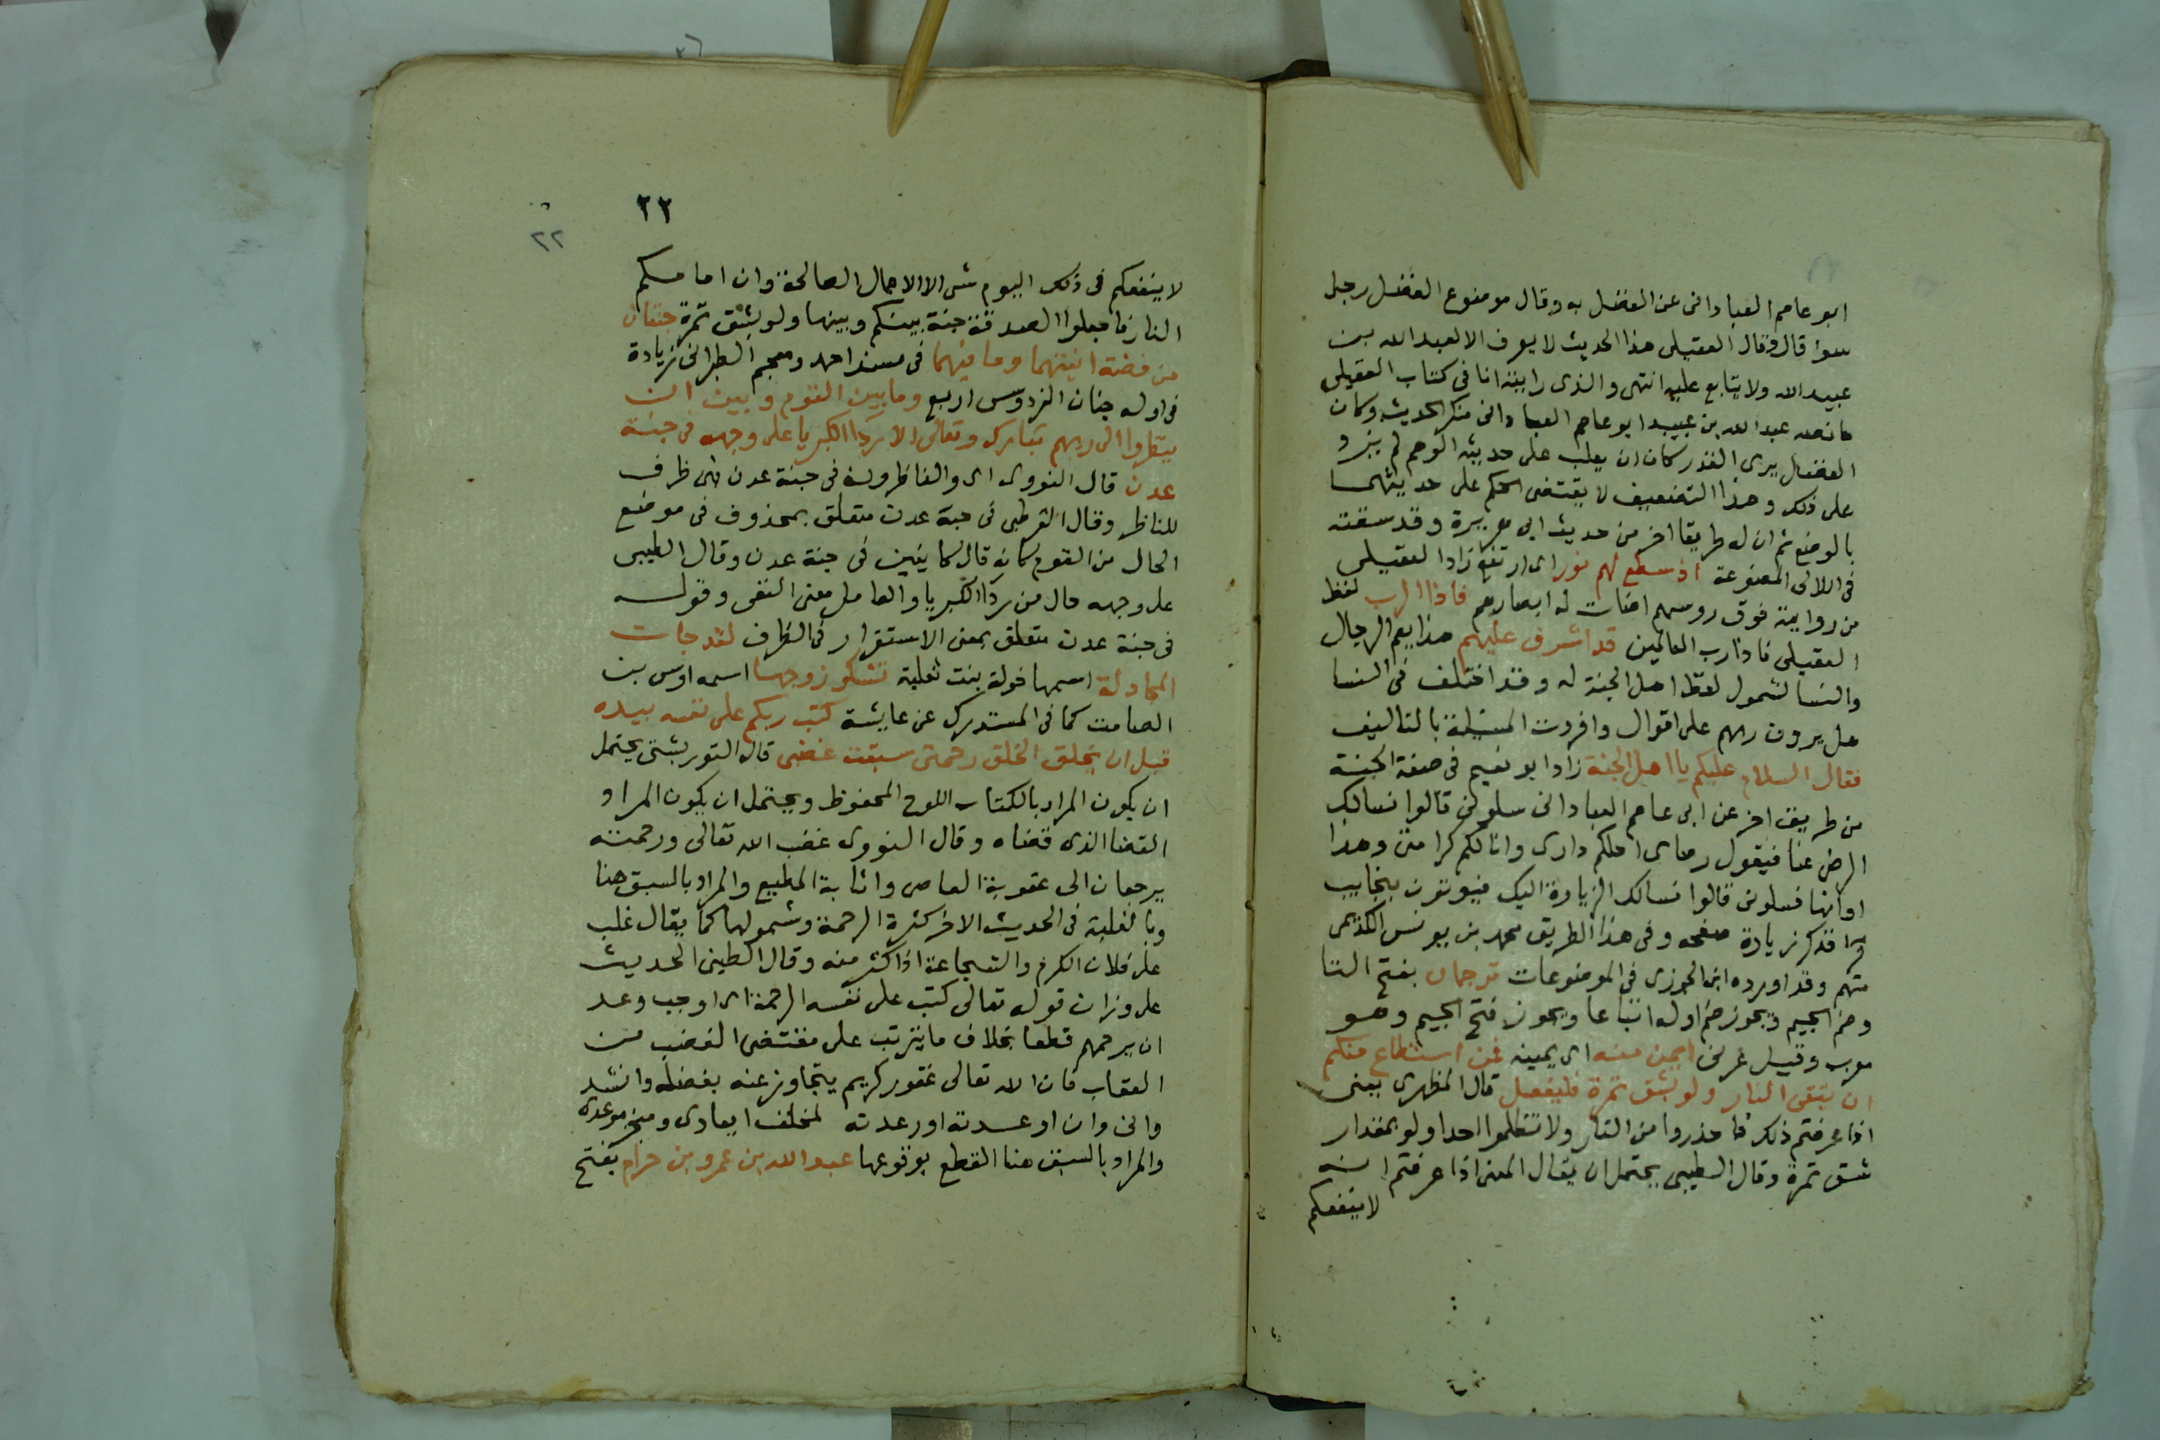 ابو عاصم العباداني عن الفضل به وقال موضوع الفضل رجل
سوء قال وقال العقيلى هذا الحديث لا يعرف الا لعبد الله بن
عبيد الله ولا يتابع عليه انتهى والذى رايته انا فى كتاب العقيلى
ما نصه عبد الله بن عبيد ابو عاصم العباداني منكر الحديث وكان
الفضل يرى القدر كان ان يغلب على حديثه الوهم لم يزد
على ذلك وهذا التضعيف لا يقتضى الحكم على حديثهما
بالوضع ثم ان له طريقا اخر من حديث ابى هريرة وقد سقته
فى اللالى المصنوعة اذ سطع لهم نور اى ارتفع زاد العقيلى
من روايته فوق روسهم اضات له ابصارهم فاذا الرب لفظ
العقيلى فاذا رب العالمين قد اشرف عليهم هذا يعم الرجال
والنسا لشمول لفظ اهل الجنة له وقد اختلف فى النسا
هل يرون ربهم على اقوال وافردت المسئلة بالتاليف
فقال السلام عليكم يا اهل الجنة زاد ابو نعيم فى صفة الجنة
من طريق اخر عن ابى عاصم العباداني سلونى قالوا نسالك
الرضى عنا فيقول رضاى احلكم دارى وانالكم كرامتى وهذا
اوانها فسلونى قالوا نسالك الزيارة اليك فيوتون بنجايب
فذكر زيادة صفحه وفى هذا الطريق محمد بن يونس الكديمى
متهم وقد اورده ابن الجوزى فى الموضوعات ترجمان بفتح التا
وضم الجيم ويجوز ضم اوله اتباعا ويجوز فتح الجيم وهو
معرب وقيل عربى ايمن منه اى يمينه فمن استطاع منكم
ان يتقى النار ولو بشق تمرة فليفعل قال المظهرى يعنى
اذا عرفتم ذلك فاحذروا من النار ولا تظلموا احدا ولو بمقدار
شق تمرة وقال الطيبى يحتمل ان يقال المعنى اذا عرفتم انه
لا ينفعكم
٢٢
٢٢
لا ينفعكم فى ذلك اليوم شى الا الاعمال الصالحة وان امامكم
النار فاجعلوا الصدقة جنة بينكم وبينها ولو بشق تمرة جنتان
من فضة انيتهما وما فيهما فى مسند احمد ومعجم الطبرانى زيادة
فى اوله جنان الفردوس اربع وما بين القوم وبين ان
ينظروا الى ربهم تبارك وتعالى الا ردا الكبريا على وجهه فى جنة
عدن قال النووى اى والناظرون فى جنة عدن فهى ظرف
للناظر وقال القرطبى فى جنة عدن متعلق بمحذوف فى موضع
الحال من القوم كانه قال كاينين فى جنة عدن وقال الطيبى
على وجهه حال من ردا الكبريا والعامل معنى النفى وقوله
فى جنة عدن متعلق بمعنى الاستقرار فى الظرف لقد جات
المجادلة اسمها خولة بنت ثعلبة تشكو زوجها اسمه اوس بن
الصامت كما فى المستدرك عن عايشة كتب ربكم على نفسه بيده
قبل ان يخلق الخلق رحمتى سبقت غضبى قال التوربشتى يحتمل
ان يكون المراد بالكتاب اللوح المحفوظ ويحتمل ان يكون المراد
القضا الذى قضاه وقال النووى غضب الله تعالى ورحمته
يرجعان الى عقوبة العاصى واثابة المطيع والمراد بالسبق هنا
وبالغلبة فى الحديث الاخر كثرة الرحمة وشمولها كما يقال غلب
على فلان الكرم والشجاعة اذا كثر منه وقال الطيبى الحديث
على وزان قوله تعالى كتب على نفسه الرحمة اى اوجب وعد
ان يرحمهم قطعا بخلاف ما يترتب على مقتضى الغضب من
العقاب فان الله تعالى غفور كريم يتجاوز عنه بفضله وانشد
وانى وان اوعدته او وعدته لمخلف ايعادى ومنجز موعدى
والمراد بالسبق هنا القطع بوقوعها عبد الله بن عمرو بن حرام بفتح